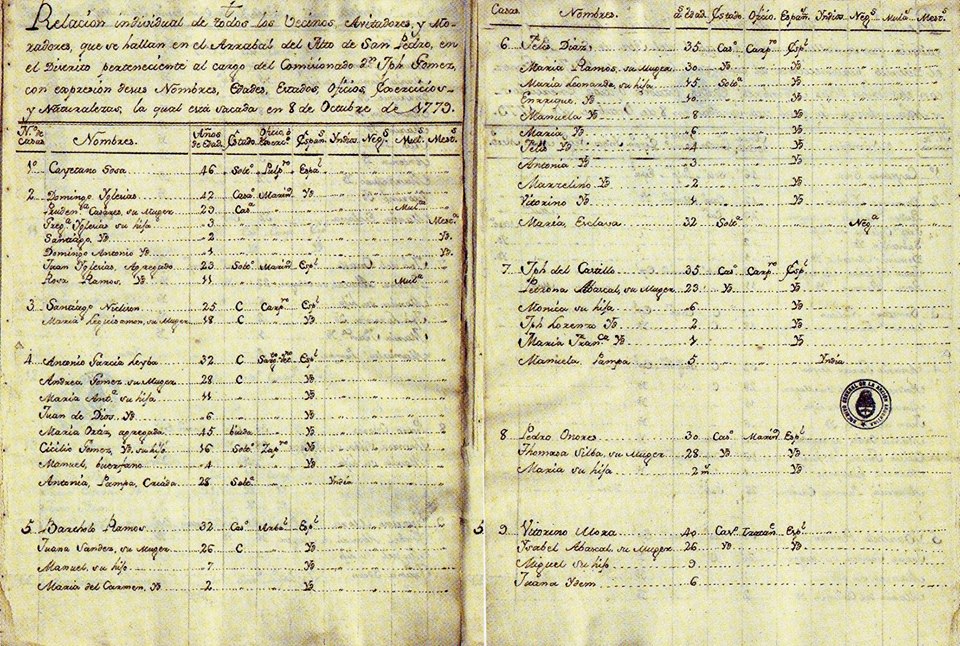 Relacion individual de todos los Vecinos, Avitadores, y Mo-
radores, que se hallan en el Arrabal del Alto de San Pedro, en
el Distrito perteneciente al cargo del Comisionado Dn. Jph Gomez,
con expresion desus Nombres, Edades, Estados, Oficios, Exercicios
y Naturalezas, la qual está sacada en 8 de Octubre de 1773.
N.os de Casas Nombres. Años de Edad. Estado Oficio, ó Exercic.o Españ.s Indios Neg.s Mul.s Mest.s
1.o Cayetano Sosa 46 Solt.o Pulp.ro Espa.l
2 Domingo Yglesias 42 Casa.o Marin.o Yd.
Casares, su Muger 23 Cas.a Mul.ta
Yglesias su hija 3 Mest.a
Santiago, Yd. 2 Yd.
Domingo Antonio Yd. 1 Yd.
Juan Yglesias, Agregado 23 Solt.o Marin.o Esp.l
Rosa Ramos, Yd. 11 Mul.a
3 Santiago 25 C Carp.ro Esp.l
Maria su Muger 18 C Yd.
4 Antonio Garcia Leyba 32 C Esp.l
Andrea Gomez, su Muger 28 C Yd.
Maria Ant.a su hija 11 Yd.
Juan de Dios, Yd. 6 Yd.
Maria Ortiz, agregada 45 biuda Yd.
Cicilio Gomez, Yd. su hijo 16 Solt.o Zap.ro Yd.
Manuel, huerfano 4 Yd.
Antonia, Pampa, Criada 28 Solt.a India
5 Bartholo Ramos 32 Cas.o Esp.l
Juana Sandes, su Muger 26 C Yd.
Manuel, su hijo 7 Yd.
Maria del Carmen, Yd. 2 Yd.
Casas Nombres. a.s edad. Estado. Oficio. Españ.s Indios Neg.s Mula.s Mest.s
6 Felis Diaz 35 Cas.o Carp.ro Esp.l
Maria Ramos, su Muger 30 Yd. Yd.
Maria Leonarda, su hija 15 Solt.a Yd.
Enrrique, Yd. 10 Yd.
Manuela Yd. 8 Yd.
Maria Yd. 6 Yd.
Felis Yd. 4 Yd.
Antonia Yd. 3 Yd.
Marzelino Yd. 2 Yd.
Vitorino Yd. 1 Yd.
Maria, Esclava 32 Solt.a Neg.a
7 Jph del Castillo 35 Cas.o Carp.ro Esp.l
Petrona Abascal, su Muger 23 Yd. Yd.
Monica su hija 6 Yd.
Jph Lorenzo Yd. 2 Yd.
Maria Fran.ca Yd. 1 Yd.
Manuela Pampa 5 India
ARCHIVO GENERAL DE LA NACION ARGENTINA
8 Pedro Onores 30 Cas.o Marin.o Esp.l
Thomasa Silba, su Muger 28 Yd. Yd.
Maria su hija 2 m.s
9 Vitorino Mora 40 Cas.o Esp.l
Ysabel Abascal, su Muger 26 Yd. Yd.
Miguel su hijo 9
Juana Ydem 6